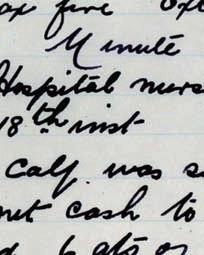 five
Minute
Hospital nurs
18th inst
Calf was s
cash to